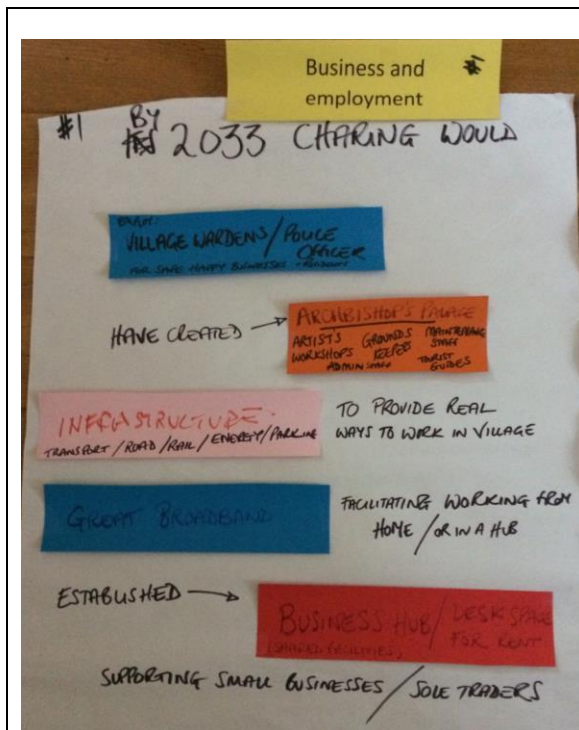 Business and #1
employment
#1 BY 2033 CHARING WOULD
VILLAGE WARDENS / POLICE
OFFICER
FOR SAFE HAPPY BUSINESSES + RESIDENTS
HAVE CREATED → ARCHBISHOP'S PALACE
ARTISTS GROUNDS MAINTENANCE
WORKSHOPS KEEPERS STAFF
ADMIN STAFF TOURIST
GUIDES
INFRASTRUCTURE.
TRANSPORT / ROAD / RAIL / ENERGY / PARKING
TO PROVIDE REAL
WAYS TO WORK IN VILLAGE
GREAT BROADBAND
FACILITATING WORKING FROM
HOME / OR IN A HUB
ESTABLISHED →
BUSINESS HUB / DESK SPACE
FOR RENT
(SHARED FACILITIES)
SUPPORTING SMALL BUSINESSES / SOLE TRADERS